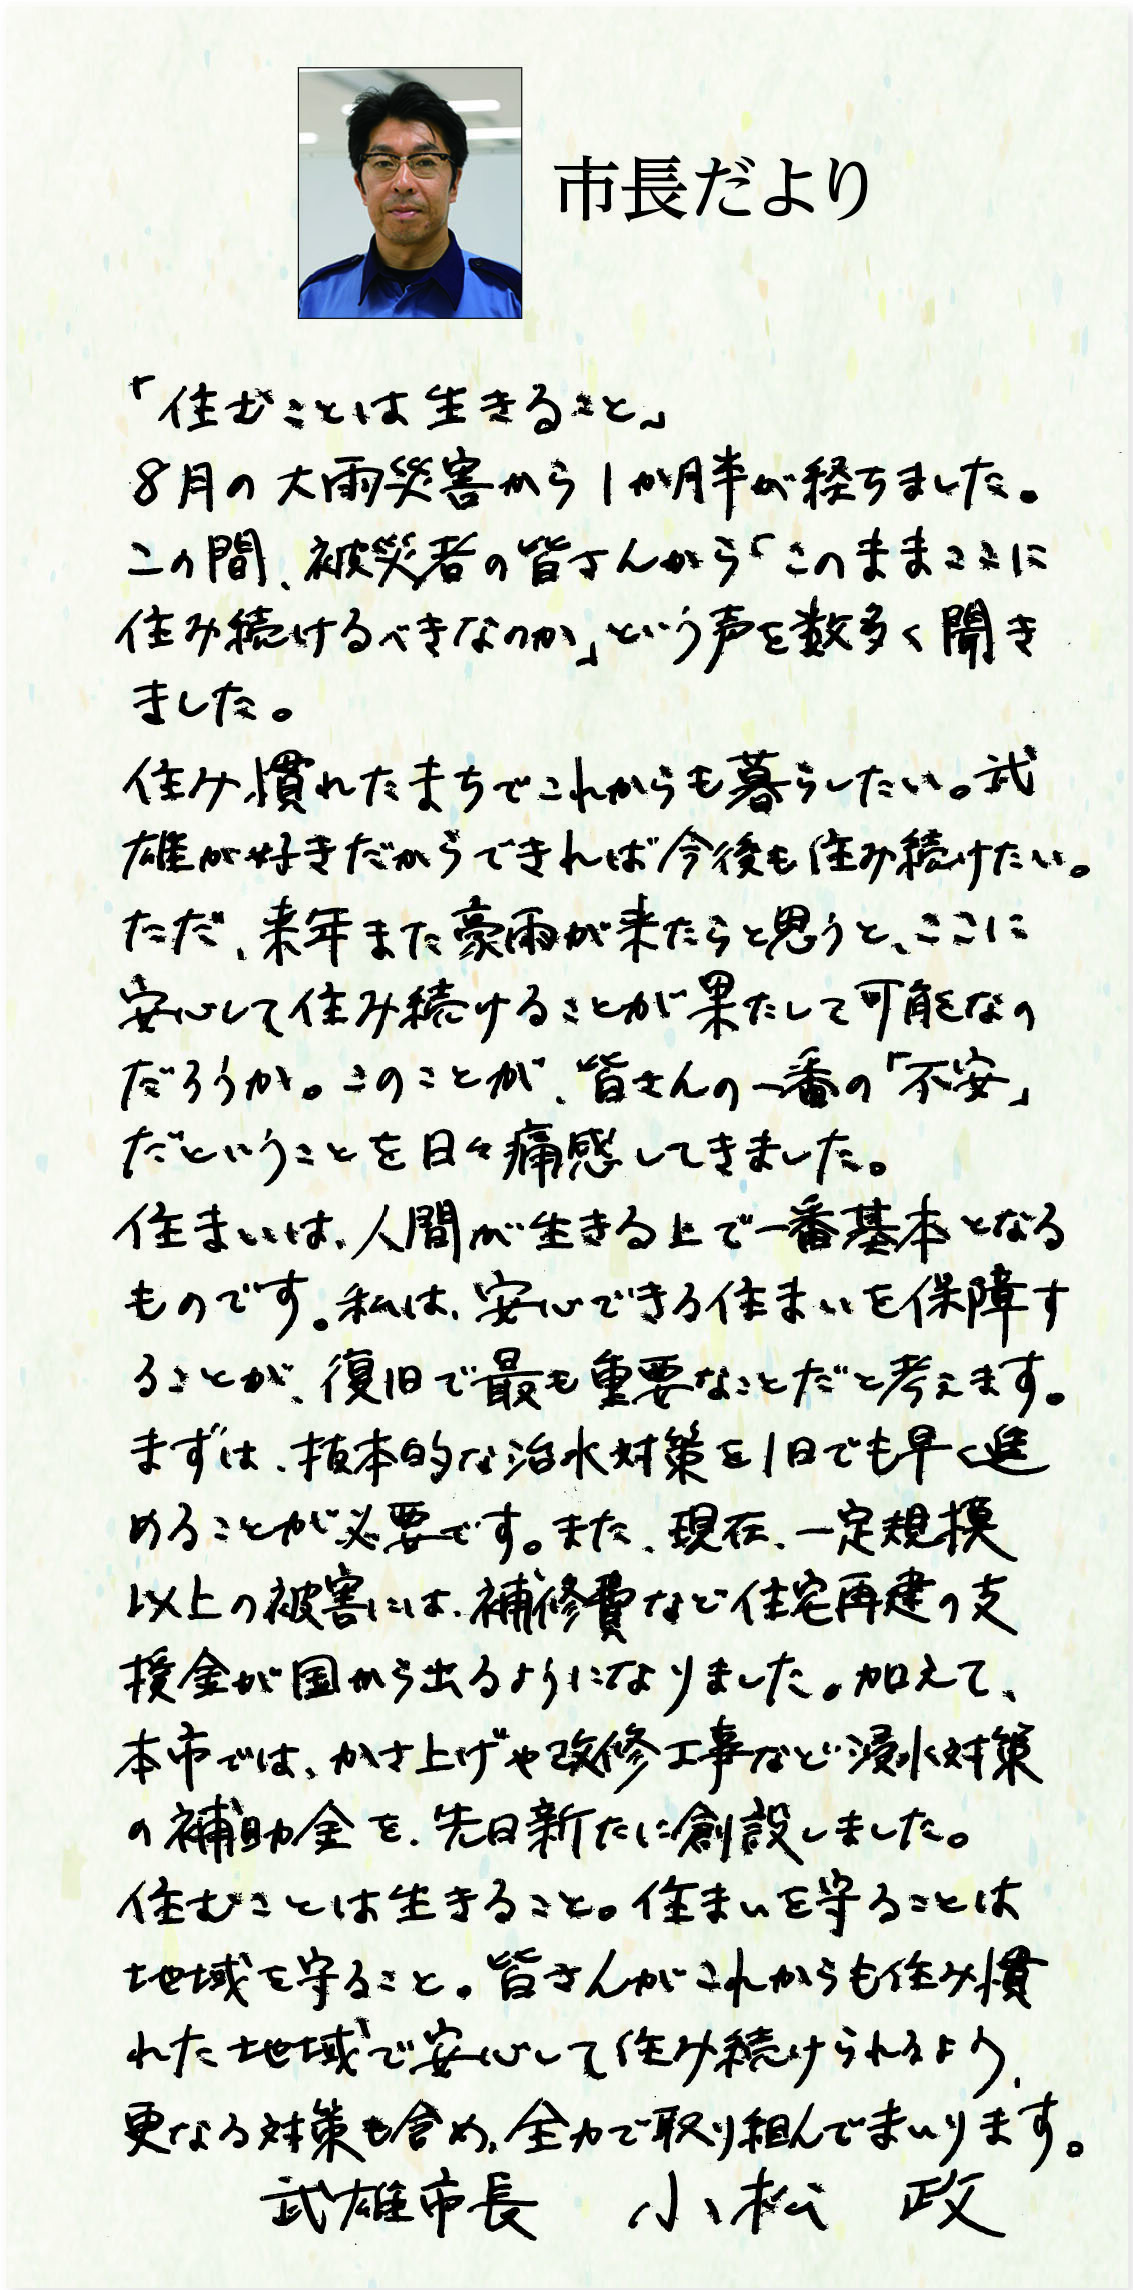 市長だより
「住むことは生きること」
8月の大雨災害から1か月半が経ちました。
この間、被災者の皆さんから「このままここに
住み続けるべきなのか」という声を数多く聞き
ました。
住み慣れたまちでこれからも暮らしたい。武
雄が好きだからできれば今後も住み続けたい。
ただ、来年また豪雨が来たらと思うと、ここに
安心して住み続けることが果たして可能なの
だろうか。このことが、皆さんの一番の「不安」
だということを日々痛感してきました。
住まいは、人間が生きる上で一番基本となる
ものです。私は、安心できる住まいを保障す
ることが、復旧で最も重要なことだと考えます。
まずは、抜本的な治水対策を1日でも早く進
めることが必要です。また、現在、一定規模
以上の被害には、補修費など住宅再建の支
援金が国から出るようになりました。加えて、
本市では、かさ上げや改修工事など浸水対策
の補助金を、先日新たに創設しました。
住むことは生きること。住まいを守ることは
地域を守ること。皆さんがこれからも住み慣
れた地域で安心して住み続けられるよう、
更なる対策も含め、全力で取り組んでまいります。
武雄市長 小松 政